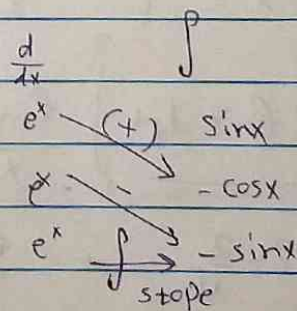 d/dx ∫
e^x (+) sinx
e^x - - cosx
e^x ∫ - sinx
stope